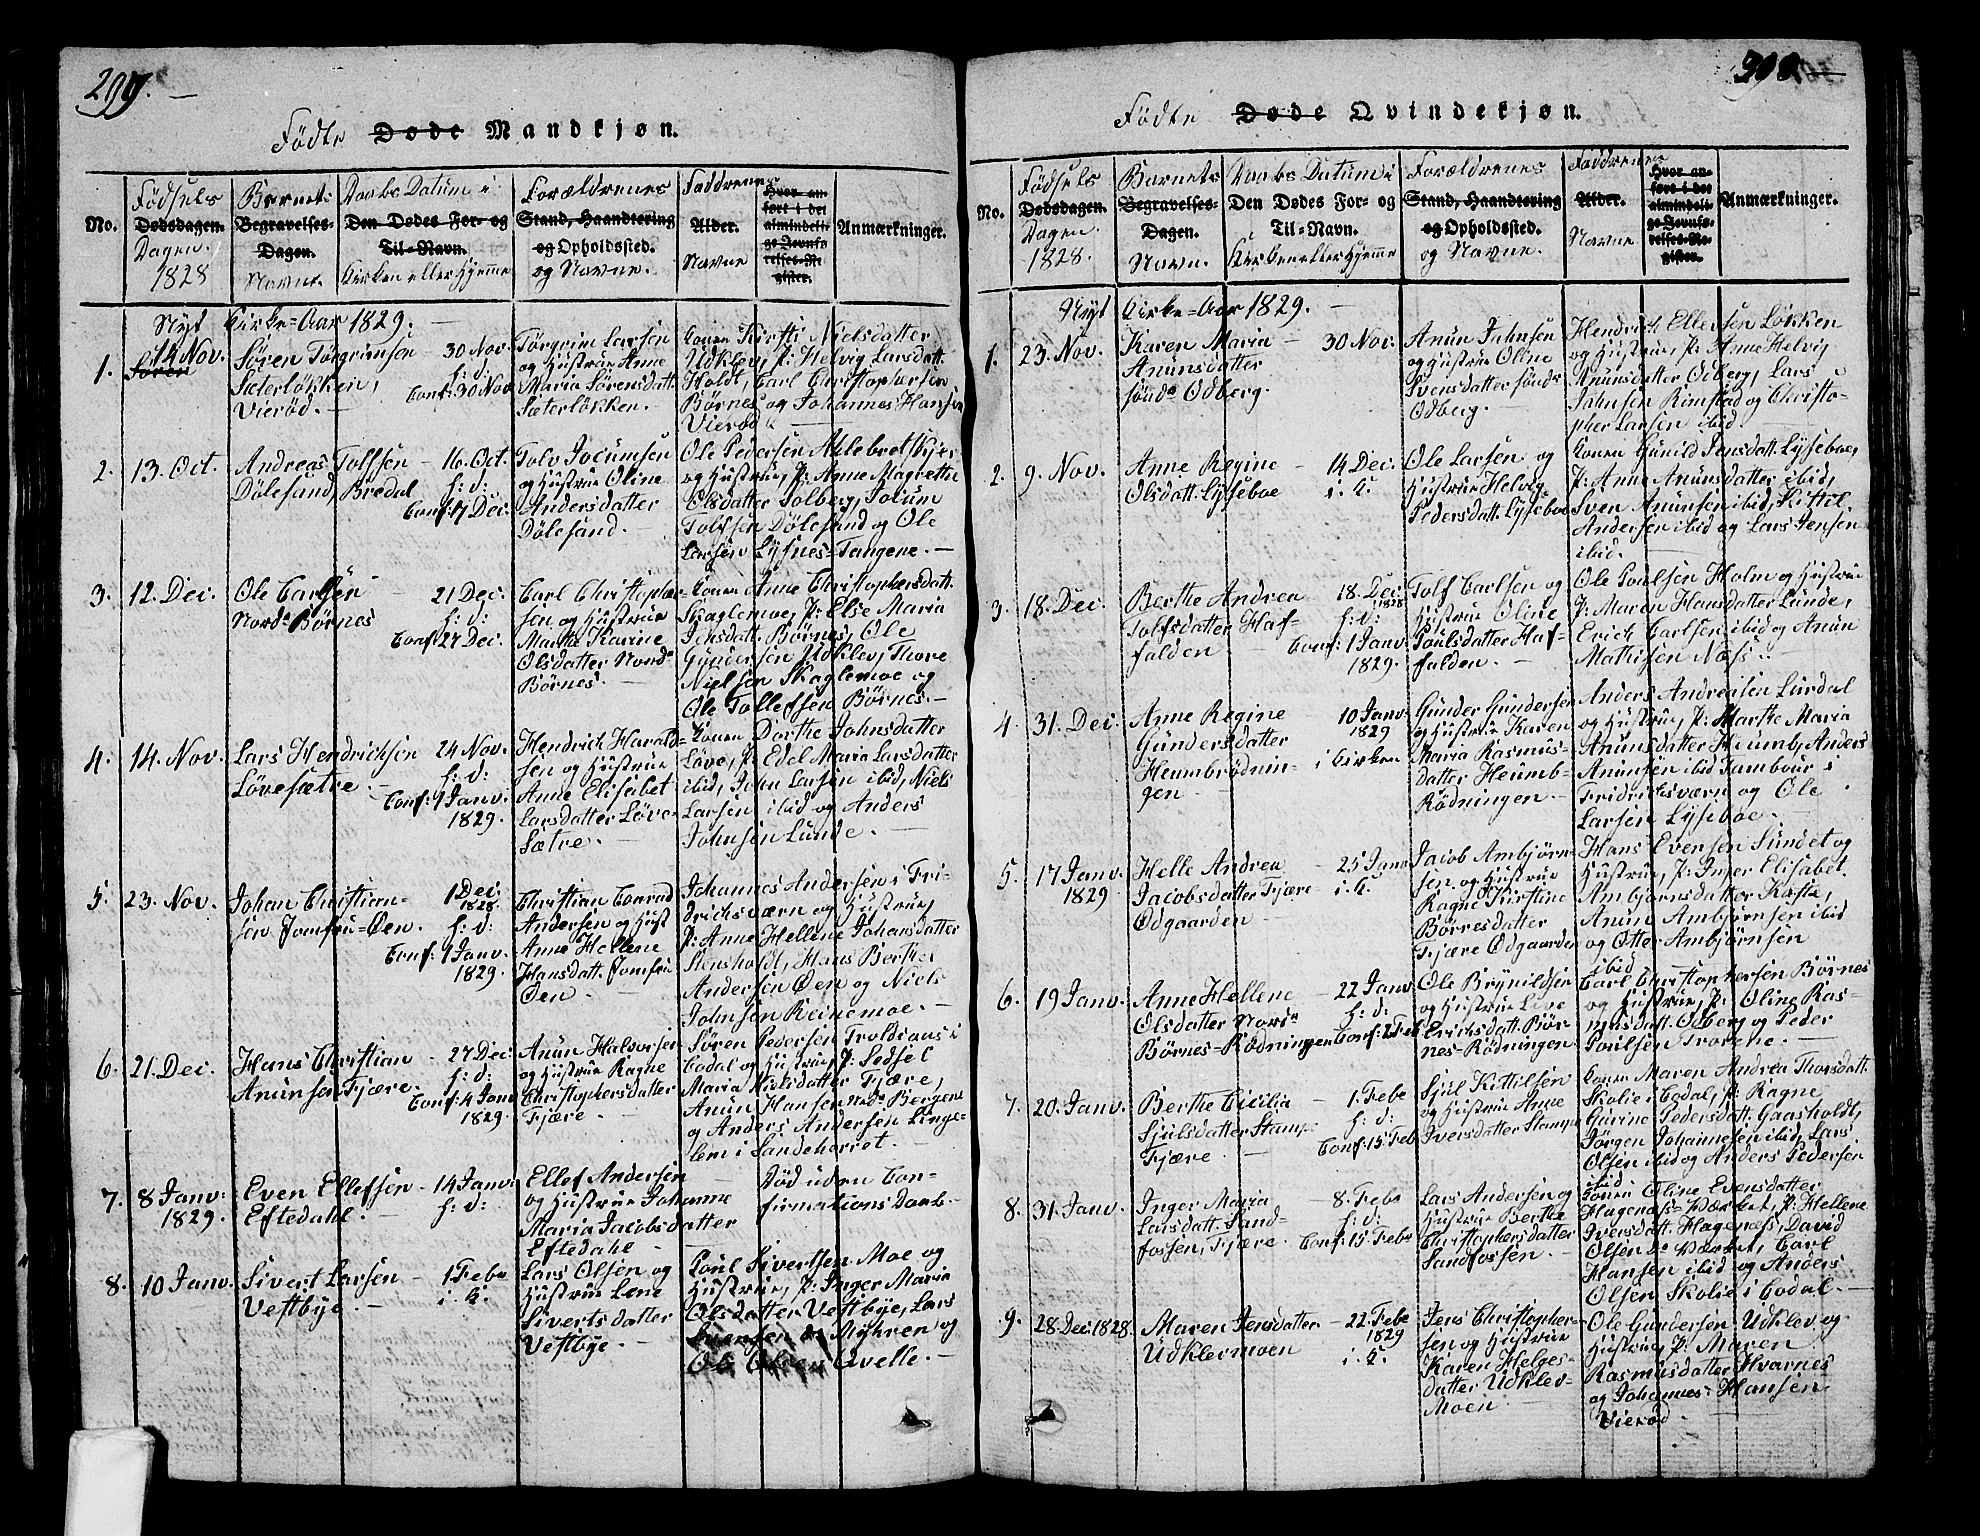 299.
Födte Døde Mandkjøn.
No.
Födsels Dødsdagen. Dagen. 1828
Barnets Begravelses-Dagen. Navne.
Daabs Datum i Den Dødes For- og Til-Navn. Kirken eller Hjemme
Forældrenes Stand, Haandtering og Opholdssted. og Navne.
Faddrenes Alder. Navne
Hvor anført i det almindelige Jevnførelses-Register.
Anmærkninger.
Nyt Kirke=Aar 1829.
1. 14 Nov. Sören Törgrimsen Säterløkken, Vierød.
30 Nov. h: d: Conf: 30 Nov
Törgrim Larsen
og Hustrue Anne
Maria Sörensdatt.
Sæterløkken.
Konen Kirsti Nielsdatter
Udklev, P: Helvig Larsdatt.
Holdt, Carl Christophersen
Börnes og Johannes Hansen
Vierød
2. 13. Oct. Andreas Tolfsen Dölesand, Bredal
16. Oct. h: d: Conf: 17 Dec.
Tolv Jocumsen
og Hustrue Oline
Andersdatter
Dölesand.
Ole Pedersen
og Hustrue, P: Anne Magrethe
Olsdatter Solberg, Jocum
Tolfsen Dölesand og Ole
Larsen Lysnes=Tangene.
3. 12. Dec. Ole Carlsen Nord: Börnes
21 Dec. h: d: Conf: 27 Dec.
Carl Christophersen og Hustrue
Marthe Karine
Olsdatter Nord:
Börnes.
Konen Anne Christophersdatt.
Skaglemoe, P: Else Maria
Jensdatt. Börnes, Ole
Gundersen Udklev, Thore
Nielsen Skaglemoe og
Ole Tollefsen Börnes.
4. 14. Nov. Lars Hendrichsen Lövesætre.
24 Nov. h: d: Conf: 1 Janv: 1829.
Hendrich Haraldsen og Hustrue
Anne Elisabet
Larsdatter Löve-
Sætre.
Konen Dorthe Johnsdatter
Löve, P: Edel Maria Larsdatter
ibid, John Larsen ibid, Niels
Larsen ibid og Anders
Johnsen Lunde.
5. 23. Nov. Johan Christiansen Jomfru=Øen.
1 Dec. 1828. h: d: Conf: 1 Janv. 1829.
Christian Conrad
Andersen og Hust
Anne Hellene
Hansdatt. Jomfru
Øen.
Johannes Andersen i Fri-
drichsværn og Hustrue,
P: Anne Hellene Johansdatter
Stensholdt, Hans Berthel
Andersen Øen og Niels
Johnsen Reinemoe.
6. 21. Dec. Hans Christian Anunsen Fjære.
27 Dec. h: d: Conf: 4 Janv 1829.
Anun Halvorsen
og Hustrue Ragne
Christophersdatter
Fjære.
Sören Pedersen i
Eodal og Hustrue, P: Sedsel
Maria Nielsdatter Fjære,
Anun Hansen Nord: Bergene
og Anders Andersen Linge-
lem i Sandeherret.
7. 8 Janv: 1829. Even Ellefsen Eftedahl.
14 Janv: h: d:
Ellef Andersen
og Hustrue Johanne
Maria Jacobsdatter
Eftedahl
Död uden Con-
firmations Daab.
8. 10 Janv. Sivert Larsen Vestbye.
1 Febr i. K.
Lars Olsen og
Hustrue Lene
Sivertsdatter
Vestbye.
Poul Sivertsen Moe og
Hustrue, P: Inger Maria
Olsdatter Vestbye, Lars
Svensen Myhren og
Ole Olsen Qvelle.
Födte Døde Qvindekjøn.
No.
Födsels Dødsdagen. Dagen. 1828.
Barnets Begravelses-Dagen. Navn.
Daabs Datum i Den Dødes For- og Til-Navn. Kirken eller Hjemme
Forældrenes Stand, Haandtering og Opholdssted. og Navne.
Faddrenes Alder. Navne
Hvor anført i det almindelige Jevnførelses-Register.
Anmærkninger.
Nyt Kirke=Aar 1829.
1. 23. Nov. Karen Maria Anunsdatter sönd: Odberg.
30 Nov.
Anun Jahnsen
og Hustrue Oline
Svensdatter sönd:
Odberg.
Hendrich Ellefsen Løkken
og Hustrue, P: Anne Helvig
Anunsdatter Odberg, Lars
Jahnsen Rimstad og Christo-
pher Larsen ibid.
2. 9. Nov. Anne Regine Olsdatt. Lyseboe
14 Dec. i. K.
Ole Larsen og
Hustrue Helvig
Pedersdatt. Lyseboe
Konen Gunild Jensdatt. Lyseboe,
P: Anne Anunsdatter ibid,
Sven Anunsen ibid, Kittel
Andersen ibid og Lars Jensen
ibid.
3. 18. Dec. Berthe Andrea Tolfsdatter Haffalden
18. Dec. 1828 h: d: Conf: 1 Janv: 1829.
Tolf Carlsen og
Hustrue Oline
Poulsdatter Haf-
falden.
Ole Poulsen Holm og Hustrue
P: Maren Hansdatter Lunde,
Erich Carlsen ibid og Anun
Mathisen Næss.
4. 31. Dec. Anne Regine Gundersdatter Heumbrödningen.
10 Janv: 1829 i Kirken
Gunder Gundersen
og Hustrue Karen
Maria Rasmus-
datter Heumb-
Rödningen.
Anders Andreasen Lurdal
og Hustrue, P: Marthe Maria
Anunsdatter Heumb, Anders
Anunsen ibid Tambour i
Fridrichsværn og Ole
Larsen Lyseboe.
5. 17 Janv. 1829 Helle Andrea Jacobsdatter Fjære Odgaarden
25 Janv i. K.
Jacob Ambjörn-
sen og Hustrue
Ragne Kirstine
Börresdatter
Fjære Odgaarden
Hans Evensen Sundet og
Hustrue, P: Inger Elisabet
Ambjörnsdatter Kaste,
Anun Ambjörnsen ibid
og Otter Ambjörnsen
ibid
6. 19 Janv. Anne Hellene Olsdatter Nord: Börnes=Rödningen
22 Janv h: d: Conf: 2 Feb
Ole Brynildsen
og Hustrue Live
Erichsdatt. Bör-
nes=Rödningen.
Carl Christophersen Börnes
og Hustrue, P: Oline Ras-
musdatt. Odberg og Peder
Poulsen Trorene.
7. 20. Janv. Berthe Cicilia Sjulsdatter Stamp Fjære.
1. Febr h: d: Conf: 15 Feb
Sjul Kittilsen
og Hustrue Anne
Iversdatter Stamp
Konen Maren Andrea Thorsdatt.
Skolie i Eodal, P: Ragne
Gurine Pedersdatt. Gaasholdt,
Jörgen Johannesen ibid, Lars
Olsen ibid og Anders Pedersen
ibid
8. 31. Janv. Inger Maria Larsdatt. Sandfossen, Fjære.
8. Febr h: d: Conf: 15 Febr
Lars Andersen og
Hustrue Berthe
Christophersdatter
Sandfossen.
Konen Oline Evensdatter
Hagenæs=Værket, P: Hellene
Iversdatt. Hagenæss, David
Olsen Værket, Carl
Hansen ibid og Anders
Olsen Skolie i Eodal.
9. 28 Dec. 1828. Maren Jensdatter Udklevmoen
22 Febr 1829 i. K.
Jens Christopher-
sen og Hustrue
Karen Helges-
datter Udklev-
Moen
Ole Gundersen Udklev og
Hustrue, P: Maren
Rasmusdatter Hvarnes
og Johannes Hansen
Vierød.